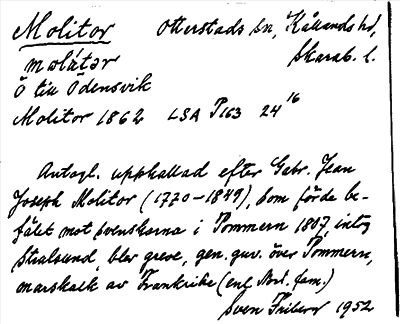 Molitor Otterstads sn, Kållands hd,
molítər Skarab. l.
Ö till Ödensvik
Molitor 1862 LSA P163 24 16
Antagl. uppkallad efter Gabr. Jean
Joseph Molitor (1770-1849), som förde be-
fälet mot svenskarna i Pommern 1807, intog
Stralsund, blev greve, gen. guv. över Pommern,
marskalk av Frankrike (enl. Nord. fam.)
Sven Friberg 1952